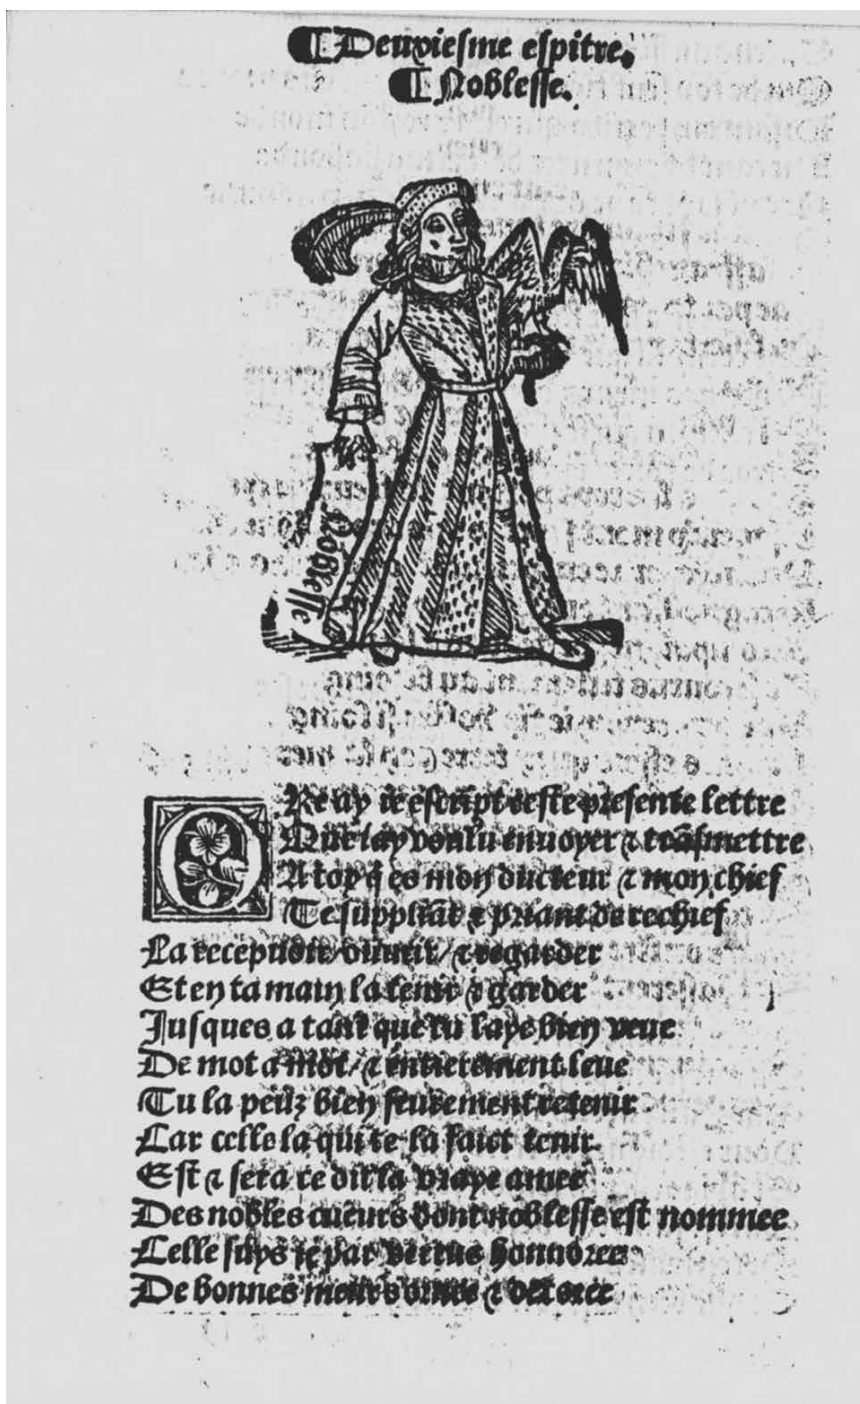 ⸿ Deuxiesme espitre.
⸿ Noblesse.
Noblesse
ORe ay ie escript ceste presente lettre
Que iay voulu enuoyer ⁊ trãsmettre
A toy q̃ es mon ducteur ⁊ mon chief
Te suppliãt ⁊ priant de rechief
La recepuoir/ ouurir/ ⁊ regarder
Et en ta main la tenir ⁊ garder
Jusques a tant que tu laye bien veue
De mot a mot/ ⁊ entierement leue
Tu la peulz bien seurement retenir
Car celle la qui te la faict tenir
Est ⁊ sera ce dit la vraye amee
Des nobles cueurs dont noblesse est nommee
Celle suys ie par vertus honnoree
De bonnes meurs ⁊ decoree